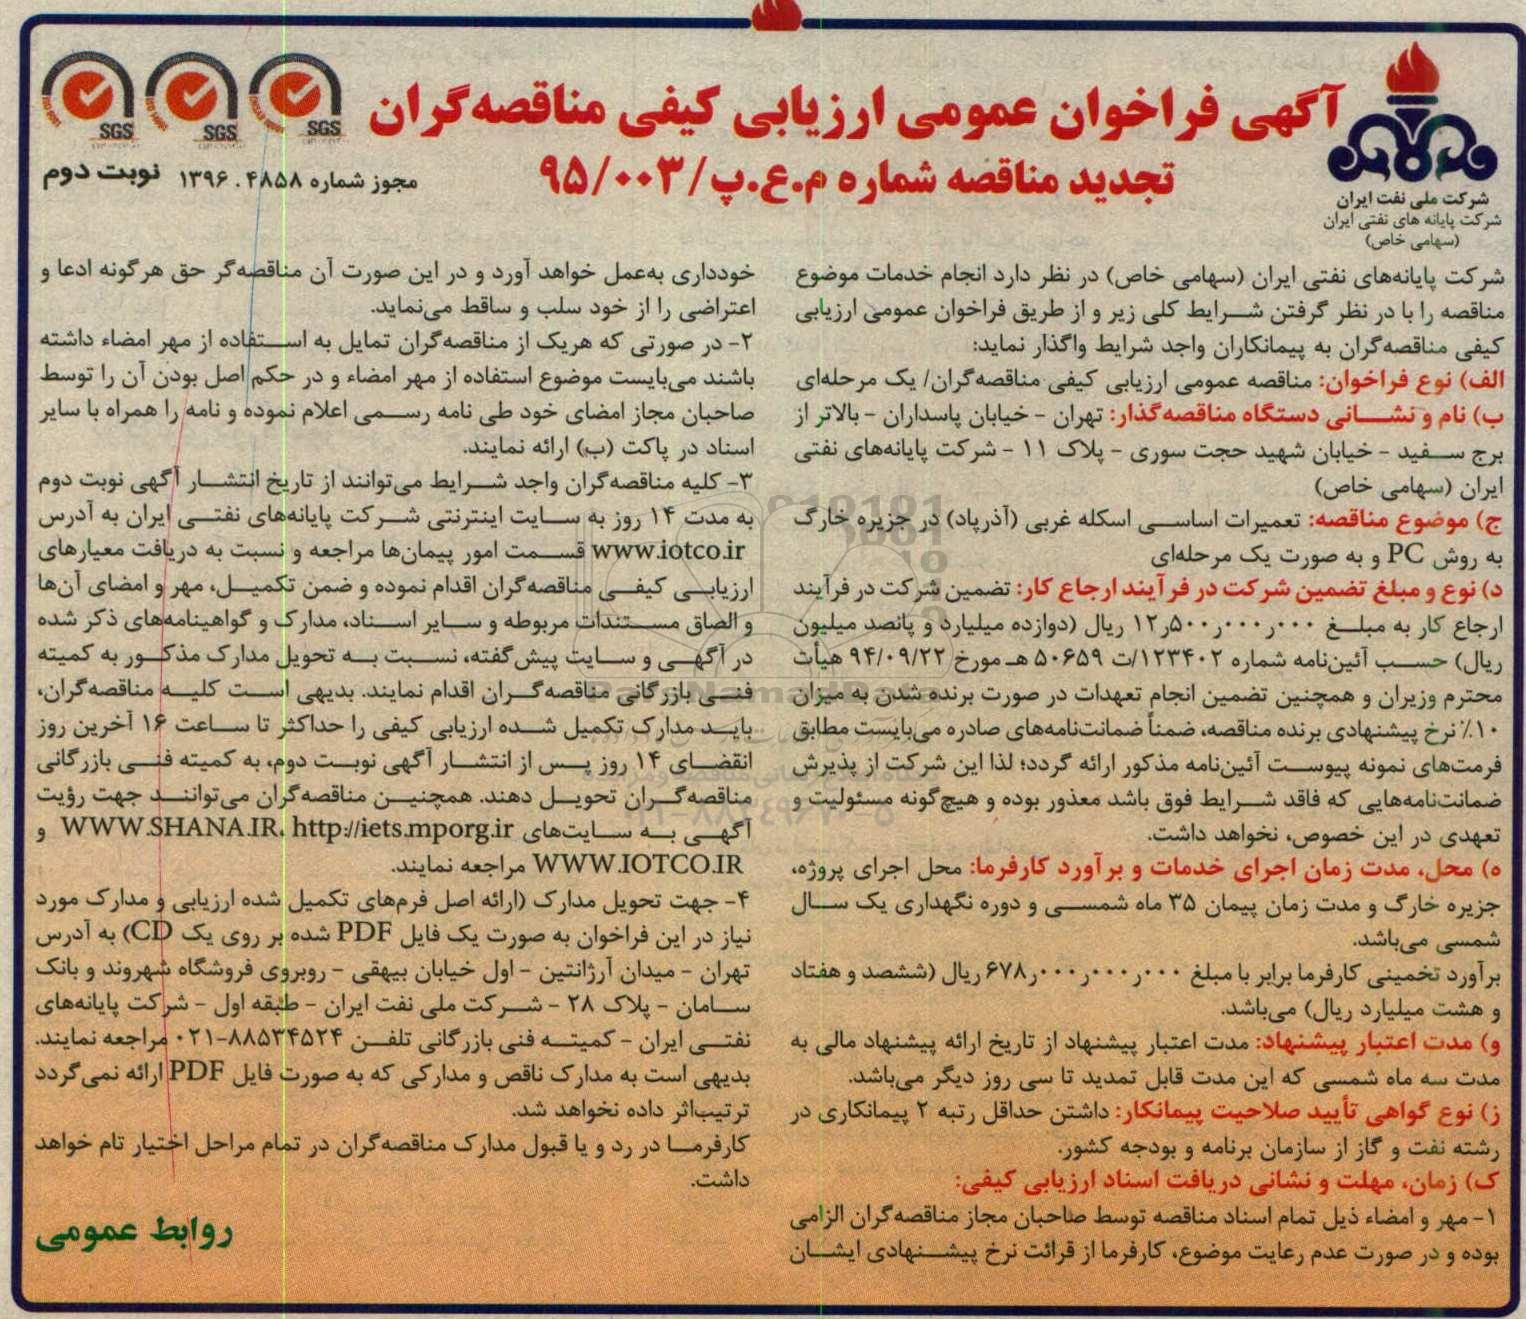 آگهی فراخوان عمومی ارزیابی کیفی مناقصه‌گران
تجدید مناقصه شماره م.ع.پ/۹۵/۰۰۳
مجوز شماره ۱۳۹۶.۴۸۵۸
نوبت دوم
SGS
SGS
SGS
شرکت ملی نفت ایران
شرکت پایانه های نفتی ایران
(سهامی خاص)
شرکت پایانه‌های نفتی ایران (سهامی خاص) در نظر دارد انجام خدمات موضوع
مناقصه را با در نظر گرفتن شرایط کلی زیر و از طریق فراخوان عمومی ارزیابی
کیفی مناقصه‌گران به پیمانکاران واجد شرایط واگذار نماید:
الف) نوع فراخوان: مناقصه عمومی ارزیابی کیفی مناقصه‌گران/ یک مرحله‌ای
ب) نام و نشانی دستگاه مناقصه‌گذار: تهران - خیابان پاسداران - بالاتر از
برج سفید - خیابان شهید حجت سوری - پلاک ۱۱ - شرکت پایانه‌های نفتی
ایران (سهامی خاص)
ج) موضوع مناقصه: تعمیرات اساسی اسکله غربی (آذرپاد) در جزیره خارگ
به روش PC و به صورت یک مرحله‌ای
د) نوع و مبلغ تضمین شرکت در فرآیند ارجاع کار: تضمین شرکت در فرآیند
ارجاع کار به مبلغ ۱۲٫۵۰۰٫۰۰۰٫۰۰۰ ریال (دوازده میلیارد و پانصد میلیون
ریال) حسب آئین‌نامه شماره ۱۲۳۴۰۲/ت ۵۰۶۵۹ هـ مورخ ۹۴/۰۹/۲۲ هیأت
محترم وزیران و همچنین تضمین انجام تعهدات در صورت برنده شدن به میزان
۱۰٪ نرخ پیشنهادی برنده مناقصه، ضمناً ضمانت‌نامه‌های صادره می‌بایست مطابق
فرمت‌های نمونه پیوست آئین‌نامه مذکور ارائه گردد؛ لذا این شرکت از پذیرش
ضمانت‌نامه‌هایی که فاقد شرایط فوق باشد معذور بوده و هیچ‌گونه مسئولیت و
تعهدی در این خصوص، نخواهد داشت.
ه) محل، مدت زمان اجرای خدمات و برآورد کارفرما: محل اجرای پروژه،
جزیره خارگ و مدت زمان پیمان ۳۵ ماه شمسی و دوره نگهداری یک سال
شمسی می‌باشد.
برآورد تخمینی کارفرما برابر با مبلغ ۶۷۸٫۰۰۰٫۰۰۰٫۰۰۰ ریال (ششصد و هفتاد
و هشت میلیارد ریال) می‌باشد.
و) مدت اعتبار پیشنهاد: مدت اعتبار پیشنهاد از تاریخ ارائه پیشنهاد مالی به
مدت سه ماه شمسی که این مدت قابل تمدید تا سی روز دیگر می‌باشد.
ز) نوع گواهی تأیید صلاحیت پیمانکار: داشتن حداقل رتبه ۲ پیمانکاری در
رشته نفت و گاز از سازمان برنامه و بودجه کشور.
ک) زمان، مهلت و نشانی دریافت اسناد ارزیابی کیفی:
۱- مهر و امضاء ذیل تمام اسناد مناقصه توسط صاحبان مجاز مناقصه‌گران الزامی
بوده و در صورت عدم رعایت موضوع، کارفرما از قرائت نرخ پیشنهادی ایشان
خودداری به‌عمل خواهد آورد و در این صورت آن مناقصه‌گر حق هرگونه ادعا و
اعتراضی را از خود سلب و ساقط می‌نماید.
۲- در صورتی که هریک از مناقصه‌گران تمایل به استفاده از مهر امضاء داشته
باشند می‌بایست موضوع استفاده از مهر امضاء و در حکم اصل بودن آن را توسط
صاحبان مجاز امضای خود طی نامه رسمی اعلام نموده و نامه را همراه با سایر
اسناد در پاکت (ب) ارائه نمایند.
۳- کلیه مناقصه‌گران واجد شرایط می‌توانند از تاریخ انتشار آگهی نوبت دوم
به مدت ۱۴ روز به سایت اینترنتی شرکت پایانه‌های نفتی ایران به آدرس
www.iotco.ir قسمت امور پیمان‌ها مراجعه و نسبت به دریافت معیارهای
ارزیابی کیفی مناقصه‌گران اقدام نموده و ضمن تکمیل، مهر و امضای آن‌ها
و الصاق مستندات مربوطه و سایر اسناد، مدارک و گواهینامه‌های ذکر شده
در آگهی و سایت پیش‌گفته، نسبت به تحویل مدارک مذکور به کمیته
فنی بازرگانی مناقصه‌گران اقدام نمایند. بدیهی است کلیه مناقصه‌گران،
باید مدارک تکمیل شده ارزیابی کیفی را حداکثر تا ساعت ۱۶ آخرین روز
انقضای ۱۴ روز پس از انتشار آگهی نوبت دوم، به کمیته فنی بازرگانی
مناقصه‌گران تحویل دهند. همچنین مناقصه‌گران می‌توانند جهت رؤیت
آگهی به سایت‌های WWW.SHANA.IR، http://iets.mporg.ir و
WWW.IOTCO.IR مراجعه نمایند.
۴- جهت تحویل مدارک (ارائه اصل فرم‌های تکمیل شده ارزیابی و مدارک مورد
نیاز در این فراخوان به صورت یک فایل PDF شده بر روی یک CD) به آدرس
تهران - میدان آرژانتین - اول خیابان بیهقی - روبروی فروشگاه شهروند و بانک
سامان - پلاک ۲۸ - شرکت ملی نفت ایران - طبقه اول - شرکت پایانه‌های
نفتی ایران - کمیته فنی بازرگانی تلفن ۸۸۵۳۴۵۲۴-۰۲۱ مراجعه نمایند.
بدیهی است به مدارک ناقص و مدارکی که به صورت فایل PDF ارائه نمی‌گردد
ترتیب‌اثر داده نخواهد شد.
کارفرما در رد و یا قبول مدارک مناقصه‌گران در تمام مراحل اختیار تام خواهد
داشت.
روابط عمومی